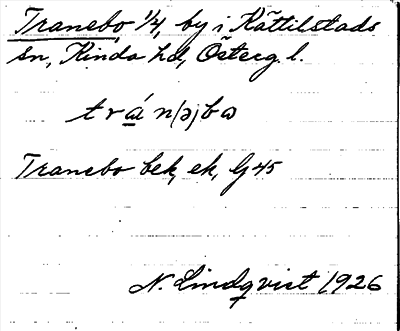 Tranebo, 1/4, by i Kättilstads
sn, Kinda hd, Österg. l.
trá̱n(ə)bω
Tranebo bek, ek, G 45
N. Lindqvist 1926